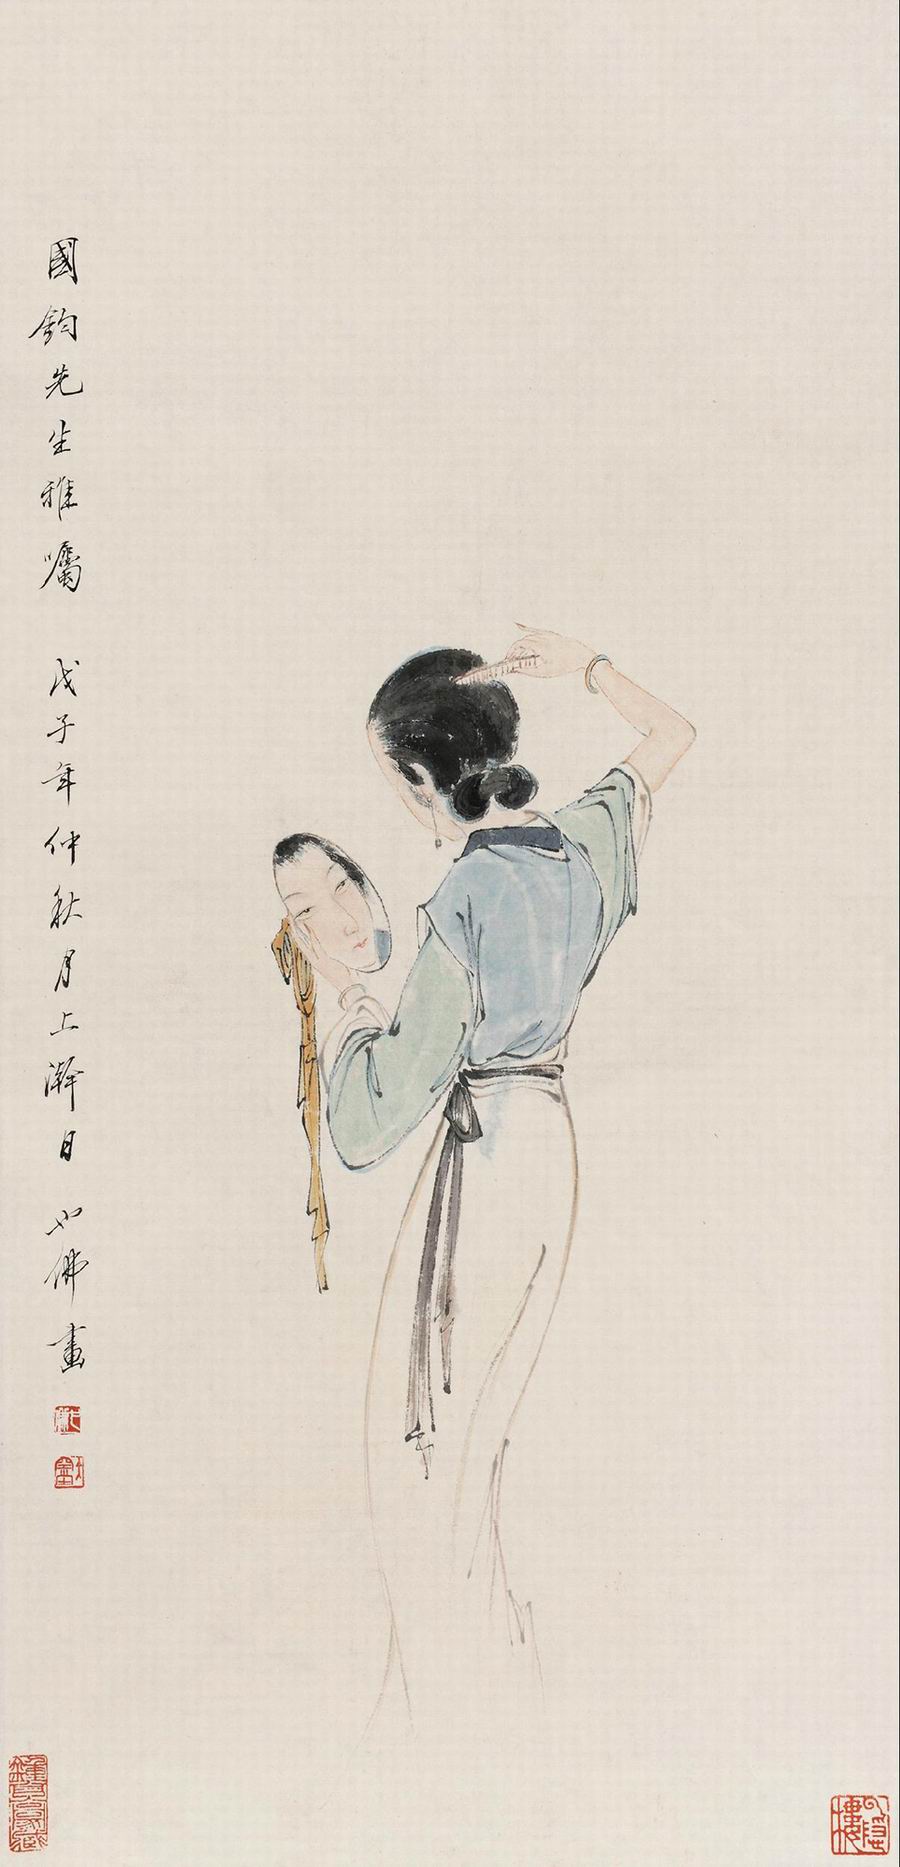 國鈞先生雅囑 戊子年仲秋月上澣日 不佛畫